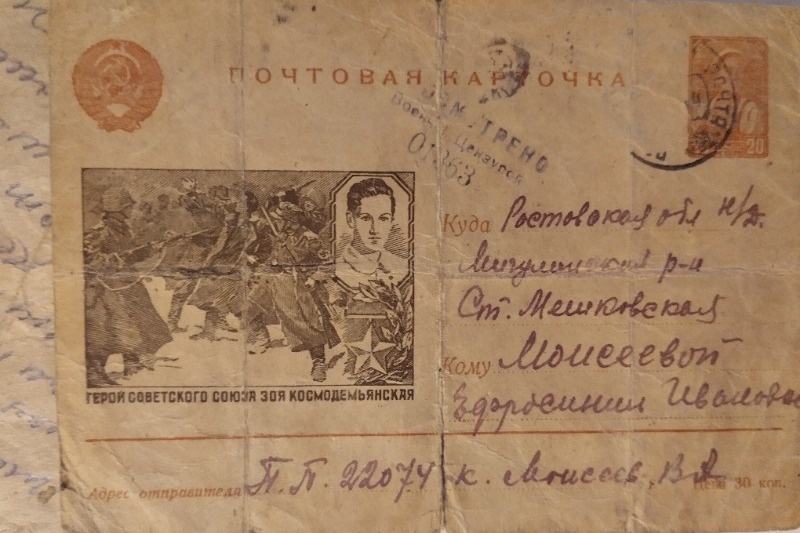 ПОЧТОВАЯ КАРТОЧКА
20
Военной Цензурой
Куда Ростовская обл н/Д.
Мигулинский р-н
Ст. Мешковская
Кому Моисеевой
Ефросинии Ивановне
ГЕРОЙ СОВЕТСКОГО СОЮЗА ЗОЯ КОСМОДЕМЬЯНСКАЯ
Адрес отправителя П.П. 22074 к. Моисеев В.А
Цена 30 коп.